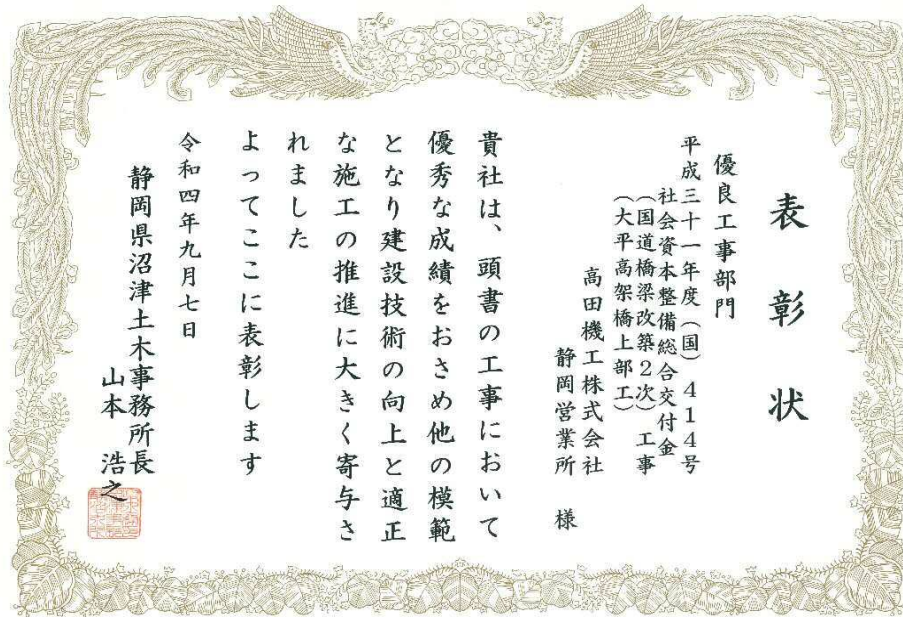 表彰状
優良工事部門
平成三十一年度（国）４１４号
社会資本整備総合交付金
（国道橋梁改築２次）工事
（大平高架橋上部工）
高田機工株式会社
静岡営業所　様
貴社は、頭書の工事において
優秀な成績をおさめ他の模範
となり建設技術の向上と適正
な施工の推進に大きく寄与さ
れました
よってここに表彰します
令和四年九月七日
静岡県沼津土木事務所長
山本　浩之